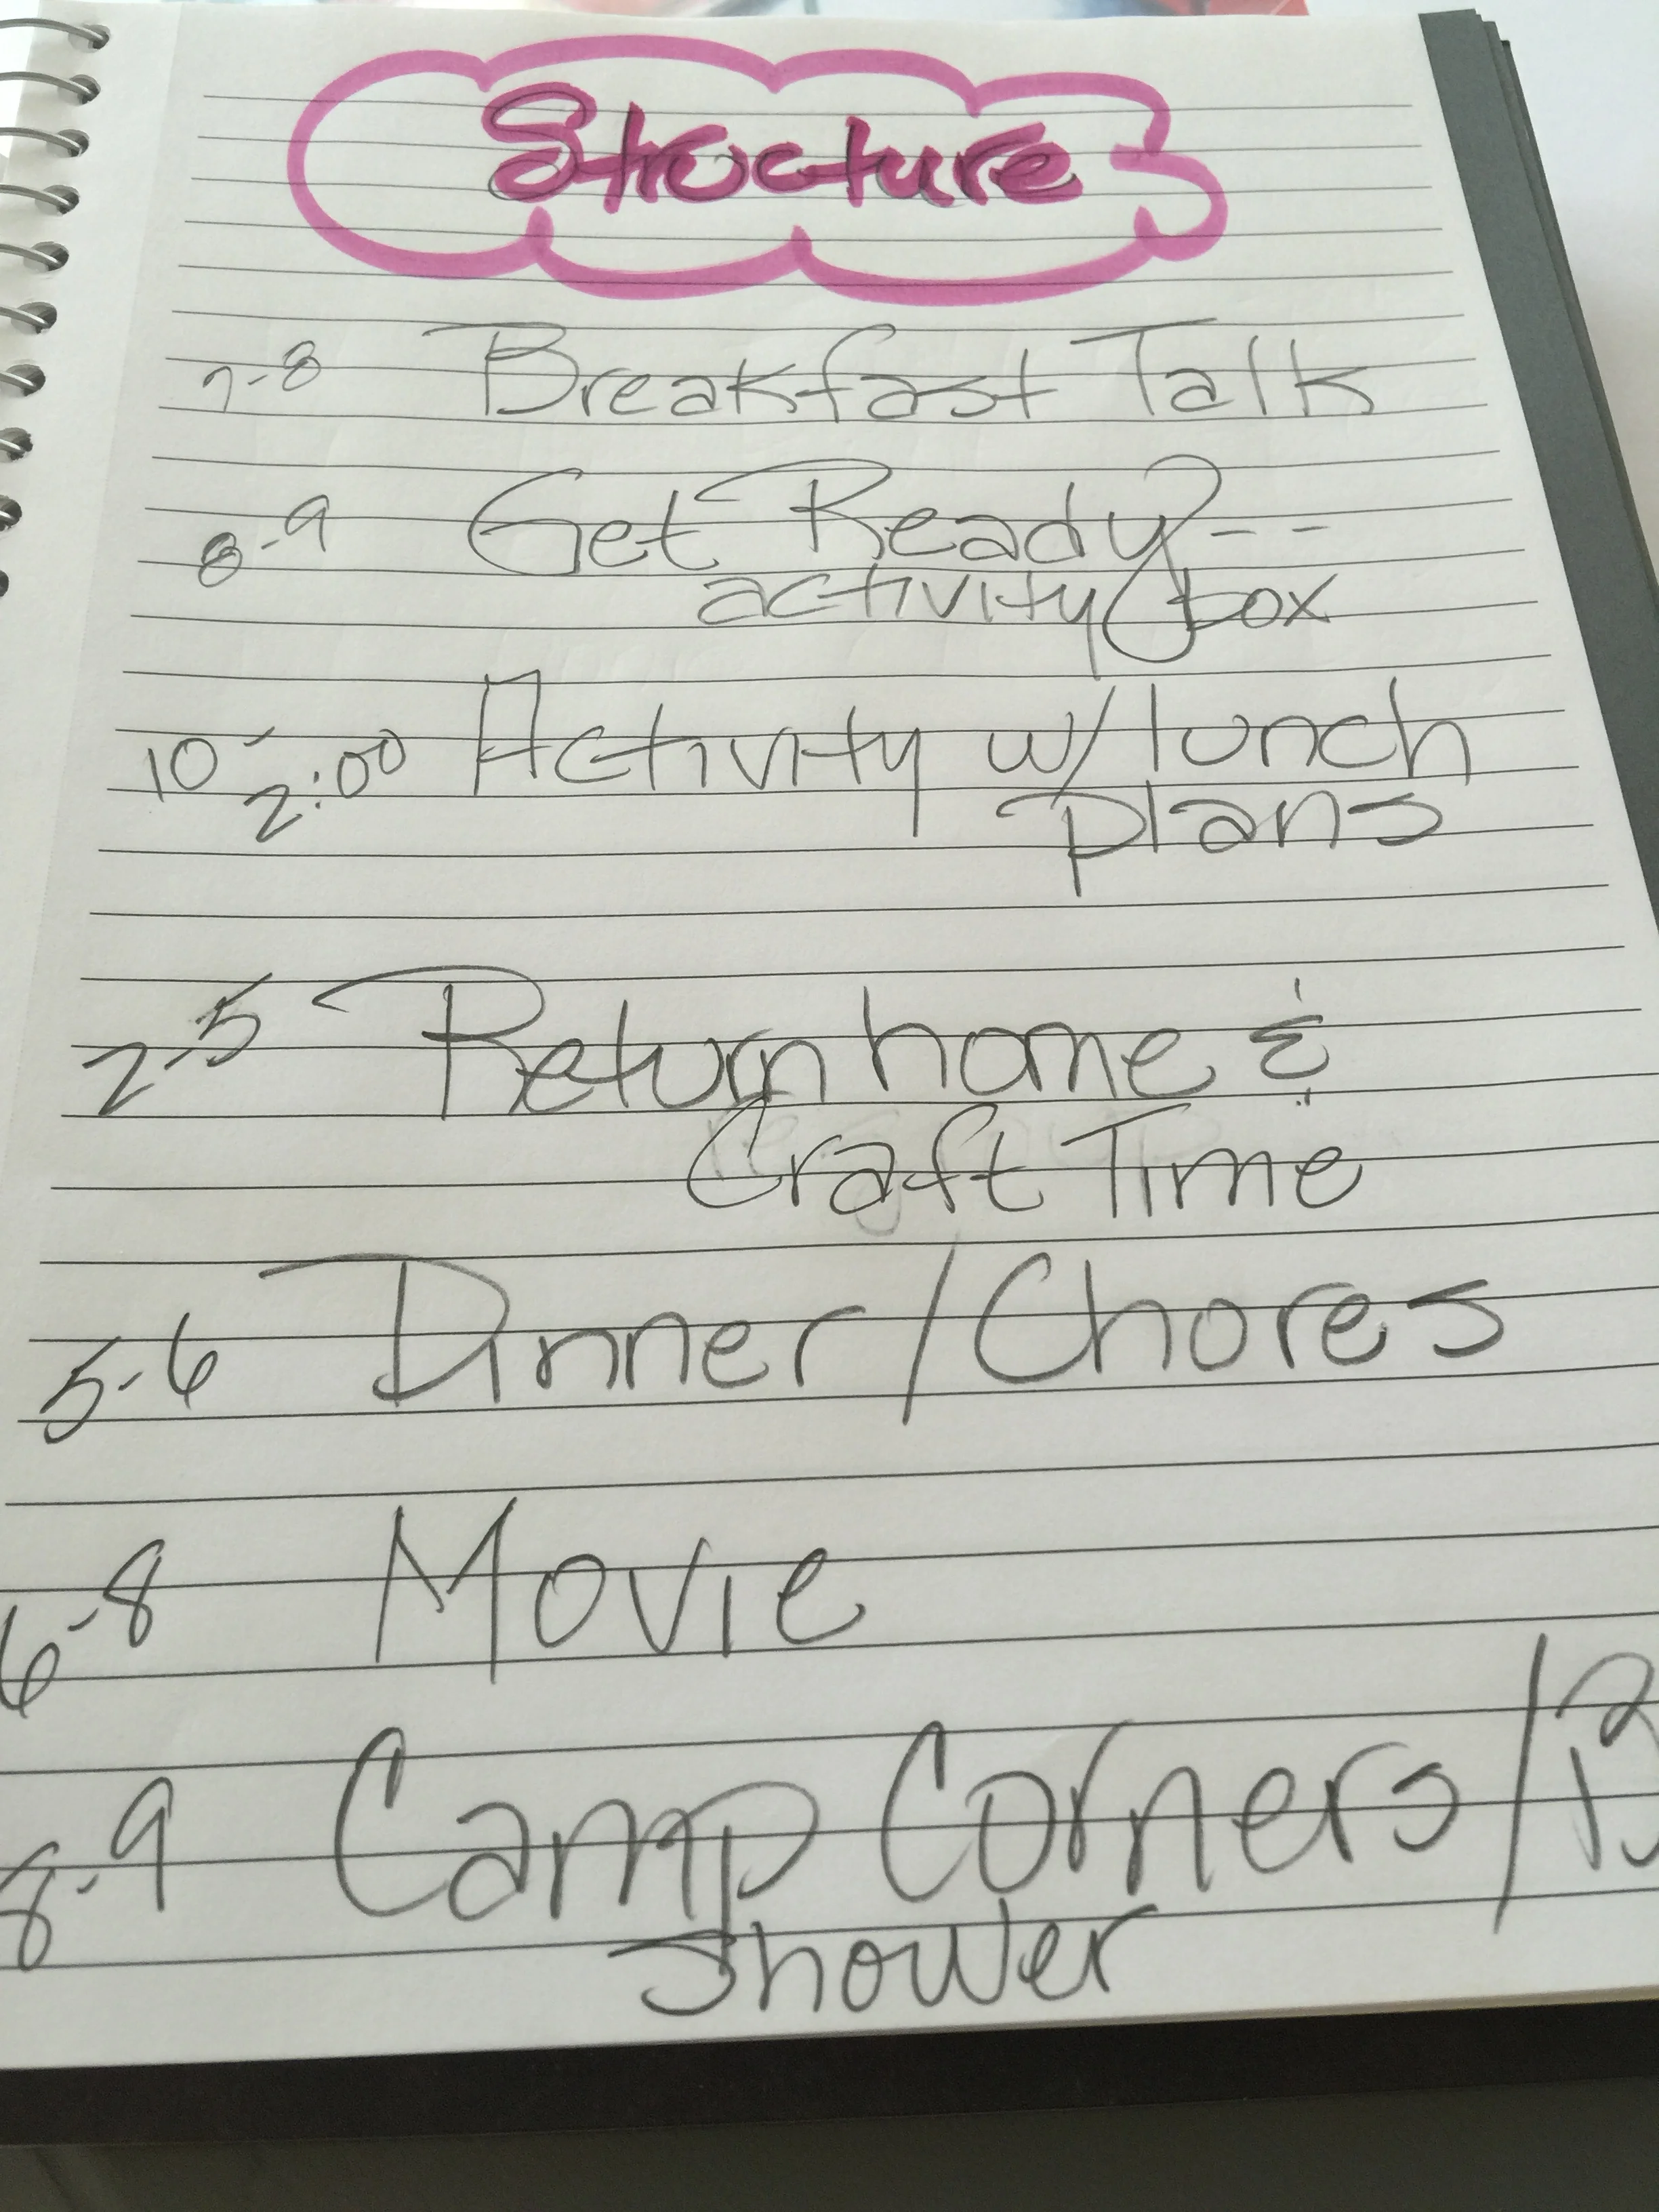 Structure
7-8 Breakfast Talk
8-9 Get Ready--
activity box
10-2:00 Activity w/ lunch
plans
2-5 Return home &
Craft Time
5-6 Dinner/Chores
6-8 Movie
8-9 Camp Corners/
shower